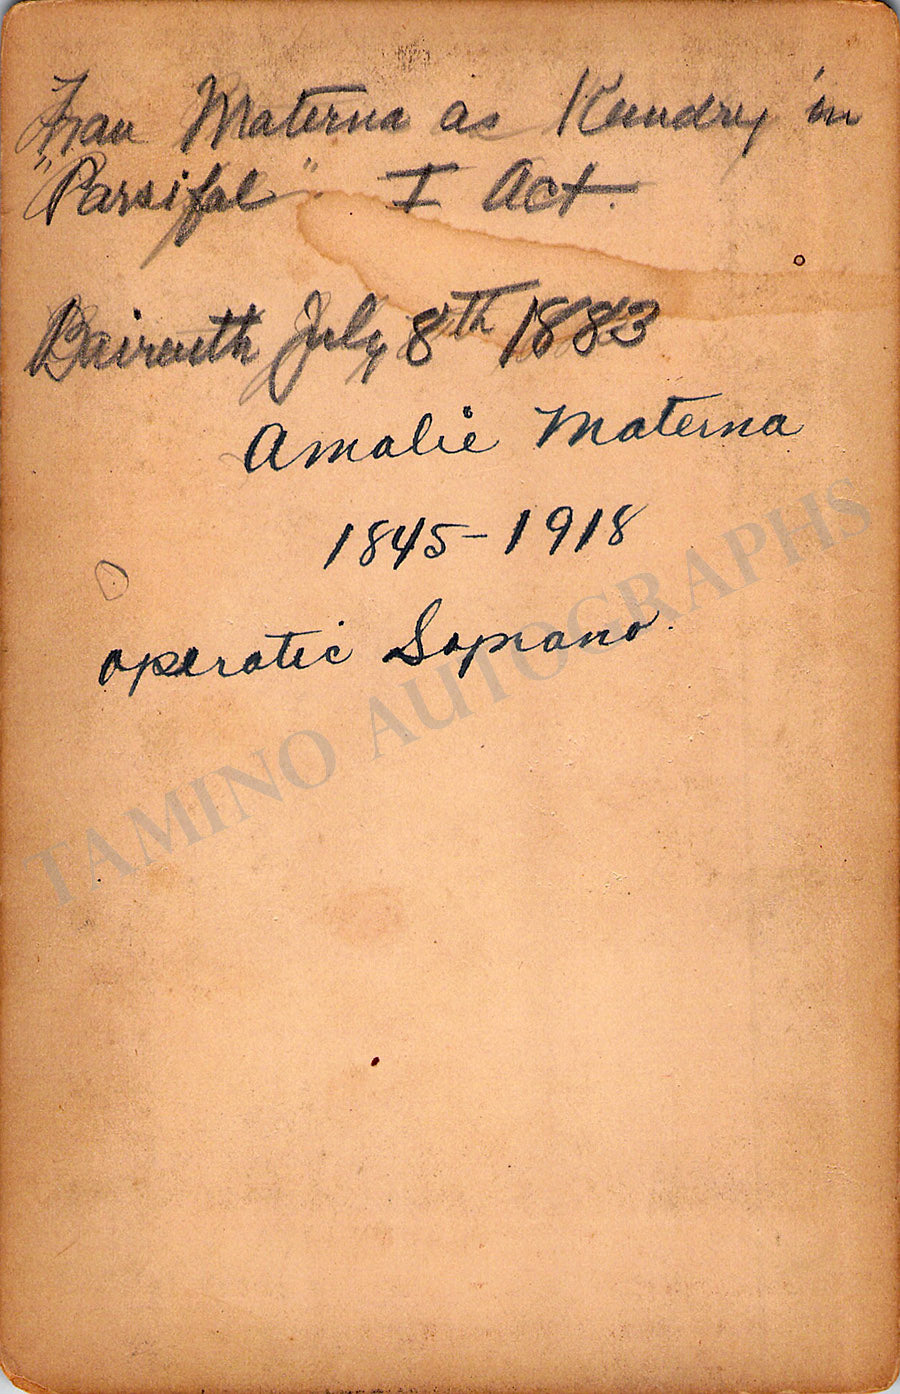 Frau Materna as Kundry in
"Parsifal" I Act.
Baireuth July 8th 1883
Amalie Materna
1845-1918
operatic Soprano.
TAMINO AUTOGRAPHS